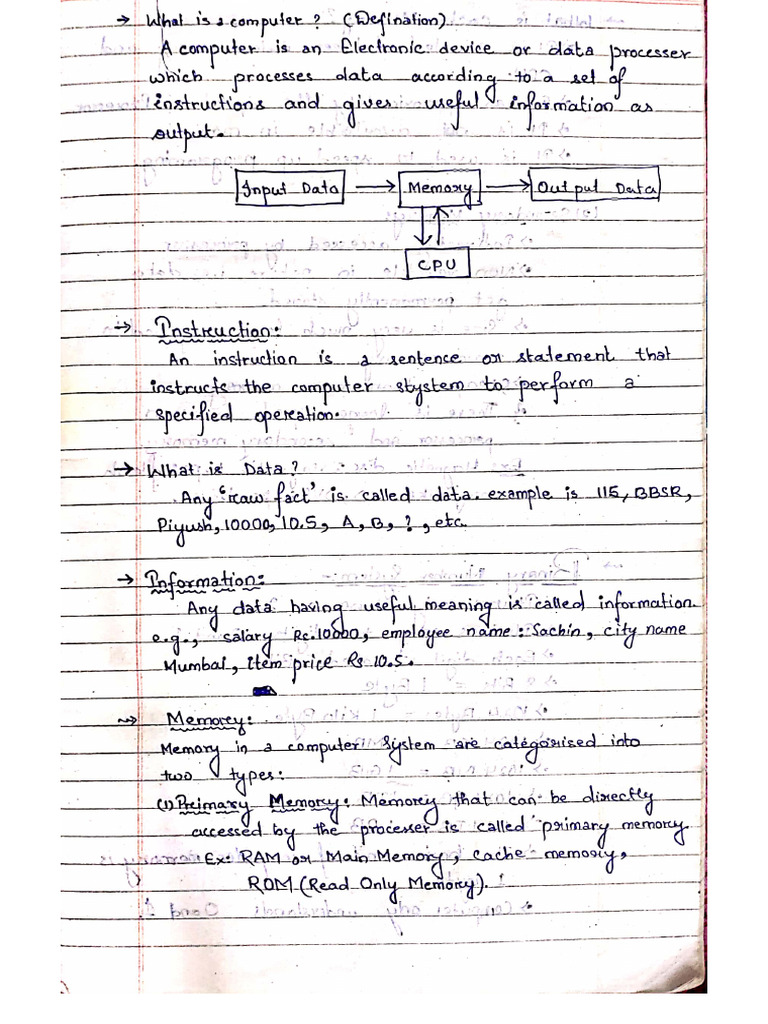 → What is a computer? (Defination)
A computer is an Electronic device or data processer
which processes data according to a set of
instructions and gives useful information as
output.
Input Data → Memory → Output Data
CPU
→ Instruction:
An instruction is a sentence or statement that
instructs the computer stystem to perform a
specified opereation.
→ What is Data?
Any 'raw fact' is called data. example is 115, BBSR,
Piyush, 10000, 10.5, A, B, ?, etc.
→ Information:
Any data having useful meaning is called information.
e.g., salary Rs. 10000, employee name: Sachin, city name
Mumbai, Item price Rs 10.5.
→ Memorey:
Memory in a computer system are categorised into
two types:
(1) Primary Memory: Memorey that can be directly
accessed by the processer is called primary memorcy.
Ex: RAM or Main Memory, cache memory,
ROM (Read Only Memory).